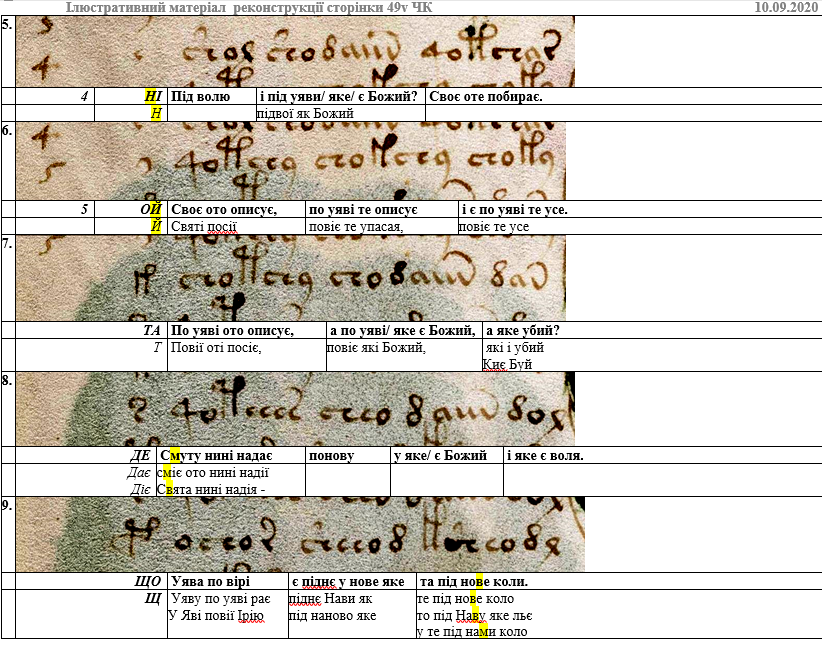 Ілюстративний матеріал реконструкції сторінки 49v ЧК 10.09.2020
5.
4 НІ Під волю і під уяви/ яке/ є Божий? Своє оте побирає.
Н підвої як Божий
6.
5 ОЙ Своє ото описує, по уяві те описує і є по уяві те усе.
Й Святі посії повіє те упасая, повіє те усе
7.
ТА По уяві ото описує, а по уяві/ яке є Божий, а яке убий?
Т Повії оті посіє, повіє які Божий, які і убий
Киє Буй
8.
ДЕ Смуту нині надає понову у яке/ є Божий і яке є воля.
Дає сміє ото нині надії
Діє Свята нині надія -
9.
ЩО Уява по вірі є підне у нове яке та під нове коли.
Щ Уяву по уяві рає підне Нави як те под нове коло
У Яві повії Ірію під наново яке то під Наву яке льє
у те під нами коло